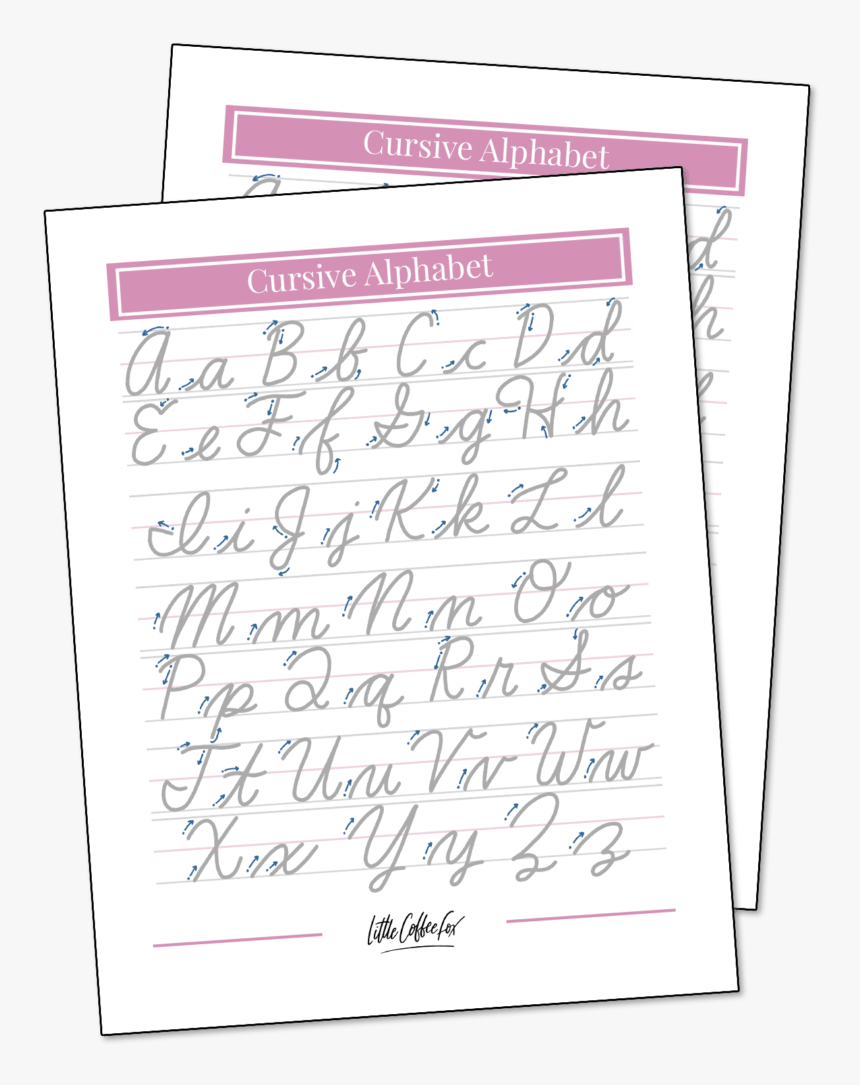 Cursive Alphabet
d
h
l
Cursive Alphabet
A a B b C c D d
E e F f G g H h
I i J j K k L l
M m N n O o
P p Q q R r S s
T t U u V v W w
X x Y y Z z
Little Coffee Fox